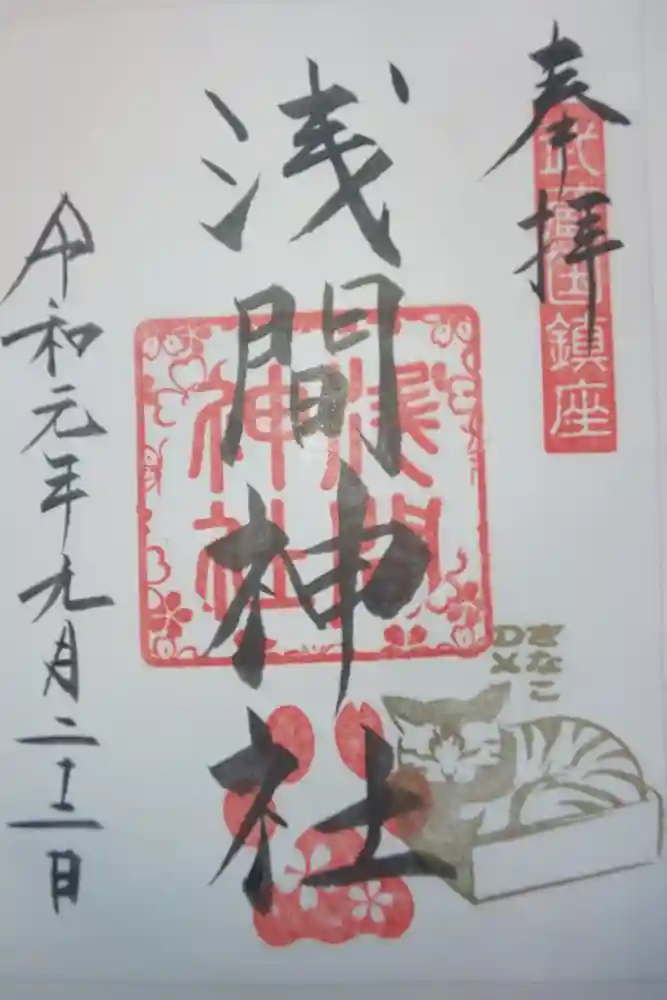 奉拝
武蔵国鎮座
浅間神社
浅間
神社
きなこ
DX
令和元年九月二十一日